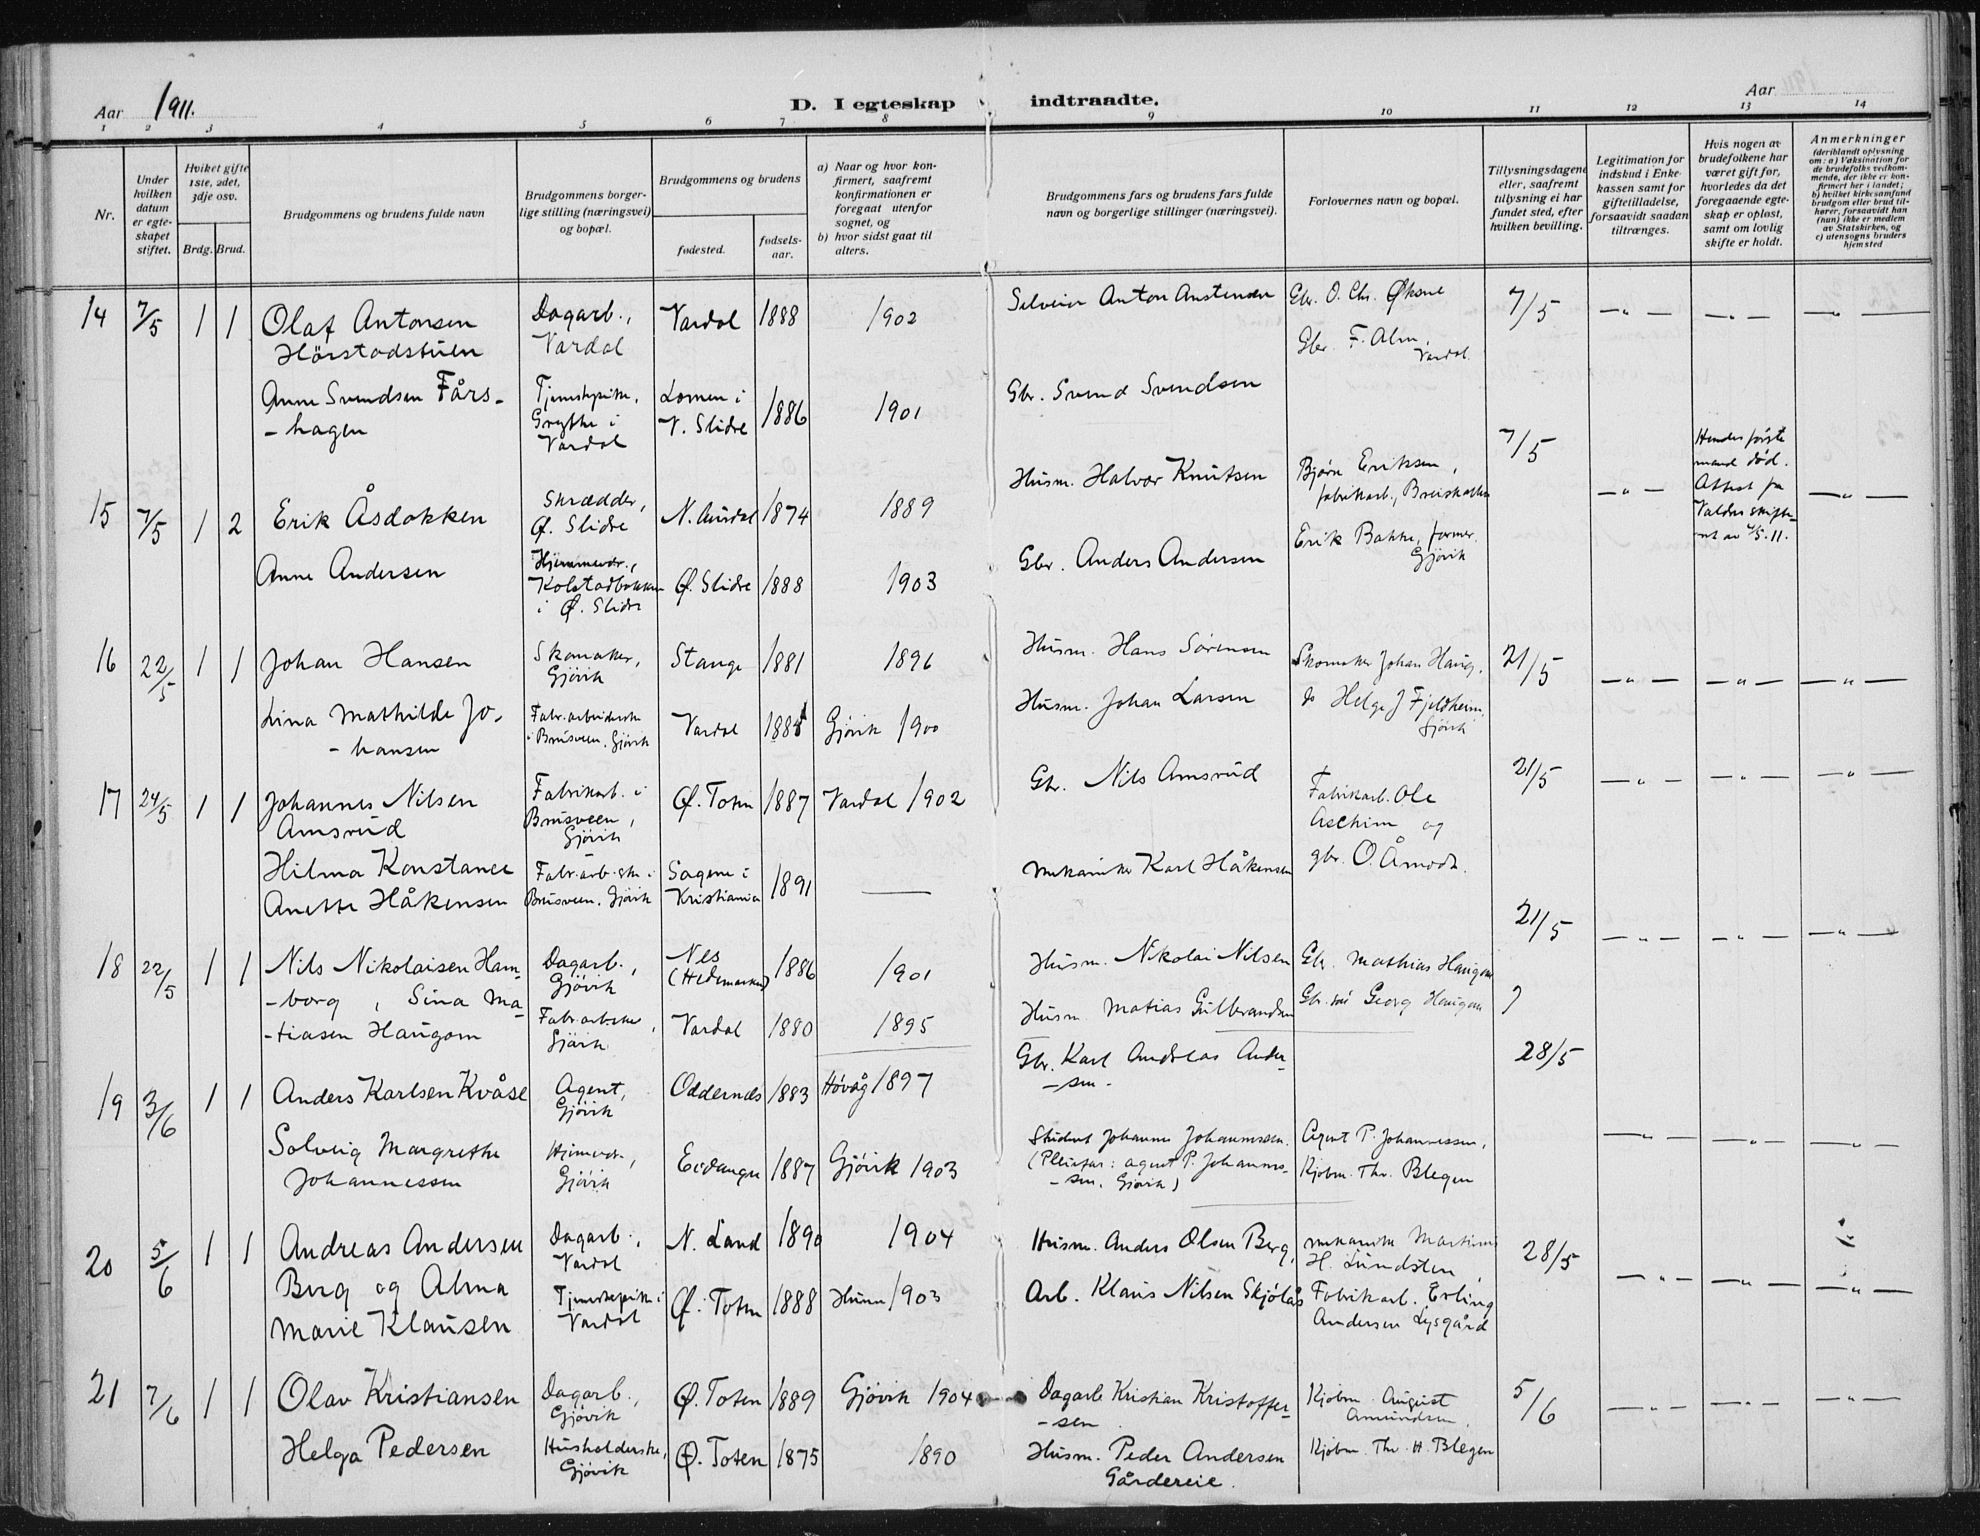 Aar 1911.
D. I egteskap indtraadte.
Aar
1 2 3 4 5 6 7 8 9 10 11 12 13 14
Nr.
Under hvilken datum er egteskapet stiftet.
Hvilket gifte 1ste, 2det, 3dje osv.
Brdg. Brud.
Brudgommens og brudens fulde navn
Brudgommens borgerlige stilling (næringsvei) og bopæl.
Brudgommens og brudens
fødested.
fødselsaar.
a) Naar og hvor konfirmert, saafremt konfirmationen er foregaat utenfor sognet, og
b) hvor sidst gaat til alters.
Brudgommens fars og brudens fars fulde navn og borgerlige stillinger (næringsvei).
Forlovernes navn og bopæl.
Tillysningsdagene eller, saafremt tillysning ei har fundet sted, efter hvilken bevilling.
Legitimation for indskud i Enkekassen samt for giftetilladelse, forsaavidt saadan tiltrænges.
Hvis nogen av brudefolkene har været gift før, hvorledes da det foregaaende egteskap er opløst, samt om lovlig skifte er holdt.
Anmerkninger
(deriblandt oplysning om: a) Vaksination for de brudefolks vedkommende, der ikke er konfirmert her i landet; b) hvilket kirkesamfund brudgom eller brud tilhører, forsaavidt han (hun) ikke er medlem av Statskirken, og c) utensogns bruders hjemsted
14 7/5 1 1 Olaf Antonsen Dagarb., Vardal 1888 1902 Selveier Anton Austensen Gbr. O. Chr. Øksne 7/5 — „ — — „ — — „ —
Hörstadstuen Vardal Gbr. F. Alm, Vardal.
Anne Svendsen Fårs- Tjenestepike, Lomen i 1886 1901 Gbr. Svend Svendsen
- hagen Grythe i V. Slidre
Vardal
15 7/5 1 2 Erik Åsdokken Skrædder, N. Aurdal 1874 1889 Husm. Halvor Knutsen Bjørn Eriksen, 7/5 — „ — Hendes første — „ —
Ø. Slidre fabrikarb., mand død.
Attest fra
Valdres skifte-
Anne Andersen Hjemmevær., Ø. Slidre 1888 1903 Gbr. Anders Andersen Erik Bakke, former.
Kolstadbakken Gjövik
i Ø. Slidre
16 22/5 1 1 Johan Hansen Skomaker, Stange 1881 1896 Husm. Hans Sörensen Skomaker Johan Haug. 21/5 — „ — — „ — — „ —
Gjövik
Lina Mathilde Jo- Fabr.arbeiderske Vardal Gjövik 1900 Husm. Johan Larsen do Helge J Fjeldheim,
- hansen i Brusveen. Gjövik Gjövik
17 24/5 1 1 Johannes Nilsen Fabrikarb. i Ø. Toten 1887 Vardal 1902 Gbr. Nils Amsrud Fabrikarb. Ole 21/5 — „ — — „ — — „ —
Amsrud Brusveen, Aschim og
Gjövik
Hilma Konstance Fabr.arb.ske i Sagene i 1891 — mekaniker Karl Håkensen gbr. O. Åmodt.
Anette Håkensen Brusveen. Gjövik Kristiania
18 22/5 1 1 Nils Nikolaisen Ham- Dagarb., Nes 1886 1901 Husm. Nikolai Nilsen Gbr. Mathias Haugom 21/5 — „ — — „ — — „ —
- borg, Sina Ma- Gjövik (Hedemarken)
- tiasen Haugom Fabr.arb.ske, Vardal 1880 1895 Husm. Matias Gulbrandsen Gbr. søn Georg Haugom
Gjövik
19 3/6 1 1 Anders Karlsen Kvåse Agent, Oddernes 1883 Hövåg 1897 Gbr. Karl Andreas Ander- 28/5 — „ — — „ — — „ —
Gjövik - sen.
Solveig Margrethe Hjemvær., Eidanger 1887 Gjövik 1903 Student Johannes Johannessen. Agent P. Johannessen,
Johannessen Gjövik (Pleiefar: agent P. Johannes- Kjøbm. Thv. Blegen
- sen, Gjövik)
20 5/6 1 1 Andreas Andersen Dagarb., N. Land 1890 1904 Husm. Anders Olsen Berg, mekaniker Martinus 28/5 — „ — — „ — — „ —
Vardal H. Lundsten,
Berg og Alma Tjenestepike i Ø. Toten 1888 Hunn 1903 Arb. Klaus Nilsen Skjölås Fabrikarb. Erling
Marie Klausen Vardal Andersen Lysgård
21 7/6 1 1 Olav Kristiansen Dagarb., Ø. Toten 1889 Gjövik 1904 Dagarb. Kristian Kristoffer- Kjøbm. August 5/6 — „ — — „ — — „ —
Gjövik - sen Amundsen,
Helga Pedersen Husholderske, Ø. Toten 1875 1890 Husm. Peder Andersen Kjøbm. Thv. H. Blegen
Gjövik Gårdereie.